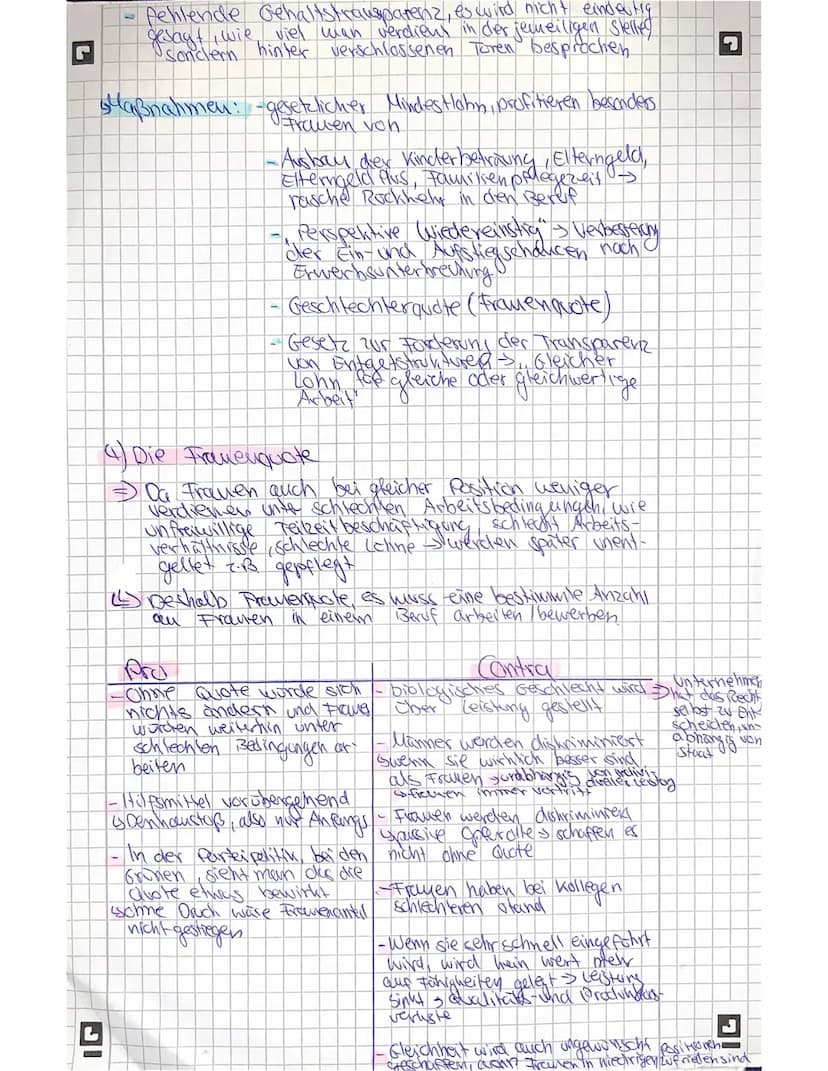 - fehlende Gehaltstransparenz, es wird nicht eindeutig
gesagt, wie viel man verdient in der jeweiligen Stelle,
sondern hinter verschlossenen Türen besprochen
↳ Maßnahmen: - gesetzlicher Mindestlohn, profitieren besonders
Frauen von
- Ausbau der Kinderbetreuung, Elterngeld,
Elterngeld Plus, Familienpflegezeit →
rasche Rückkehr in den Beruf
- "Perspektive Wiedereinstieg" → Verbesserung
der Ein- und Aufstiegschancen nach
Erwerbsunterbrechung
- Geschlechterquote (Frauenquote)
- Gesetz zur Förderung der Transparenz
von Entgeltstrukturen → "Gleicher
Lohn für gleiche oder gleichwertige
Arbeit"
4) Die Frauenquote
⇒ Da Frauen auch bei gleicher Position weniger
verdienen unter schlechten Arbeitsbedingungen, wie
unfreiwillige Teilzeitbeschäftigung, schlecht Arbeits-
verhältnisse, schlechte Löhne → werden später unent-
geltet z.B gepflegt
↳ Deshalb Frauenquote, es muss eine bestimmte Anzahl
an Frauen in einem Beruf arbeiten / bewerben
Pro
- Ohne Quote würde sich
nichts ändern und Frauen
würden weiterhin unter
schlechten Bedingungen ar-
beiten
- Hilfsmittel vorübergehend
↳ Denkanstoß, also nur Anfangs
- In der Parteipolitik, bei den
Grünen, sieht man das die
Quote etwas bewirkt
↳ ohne Druck wäre Frauenanteil
nicht gestiegen
Contra
- biologisches Geschlecht wird
über Leistung gestellt
⇒ Unternehmen
hat das Recht
selbst zu Ent-
scheiden, un-
abhängig von
Staat
- Männer werden diskriminiert
↳ wenn sie wirklich besser sind
als Frauen → unabhängig von
↳ Frauen immer
- Frauen werden diskriminiert
↳ passive → schaffen es
nicht ohne Quote
- Frauen haben bei Kollegen
schlechteren stand
- Wenn sie sehr schnell eingeführt
wird, wird kein wert mehr
auf Fähigkeiten gelegt → Leistung
sinkt → Qualitäts- und Produktions-
verluste
- Gleichheit wird auch ungewünscht
geschaffen, wenn Frauen in niedrigen Positionen zufrieden sind